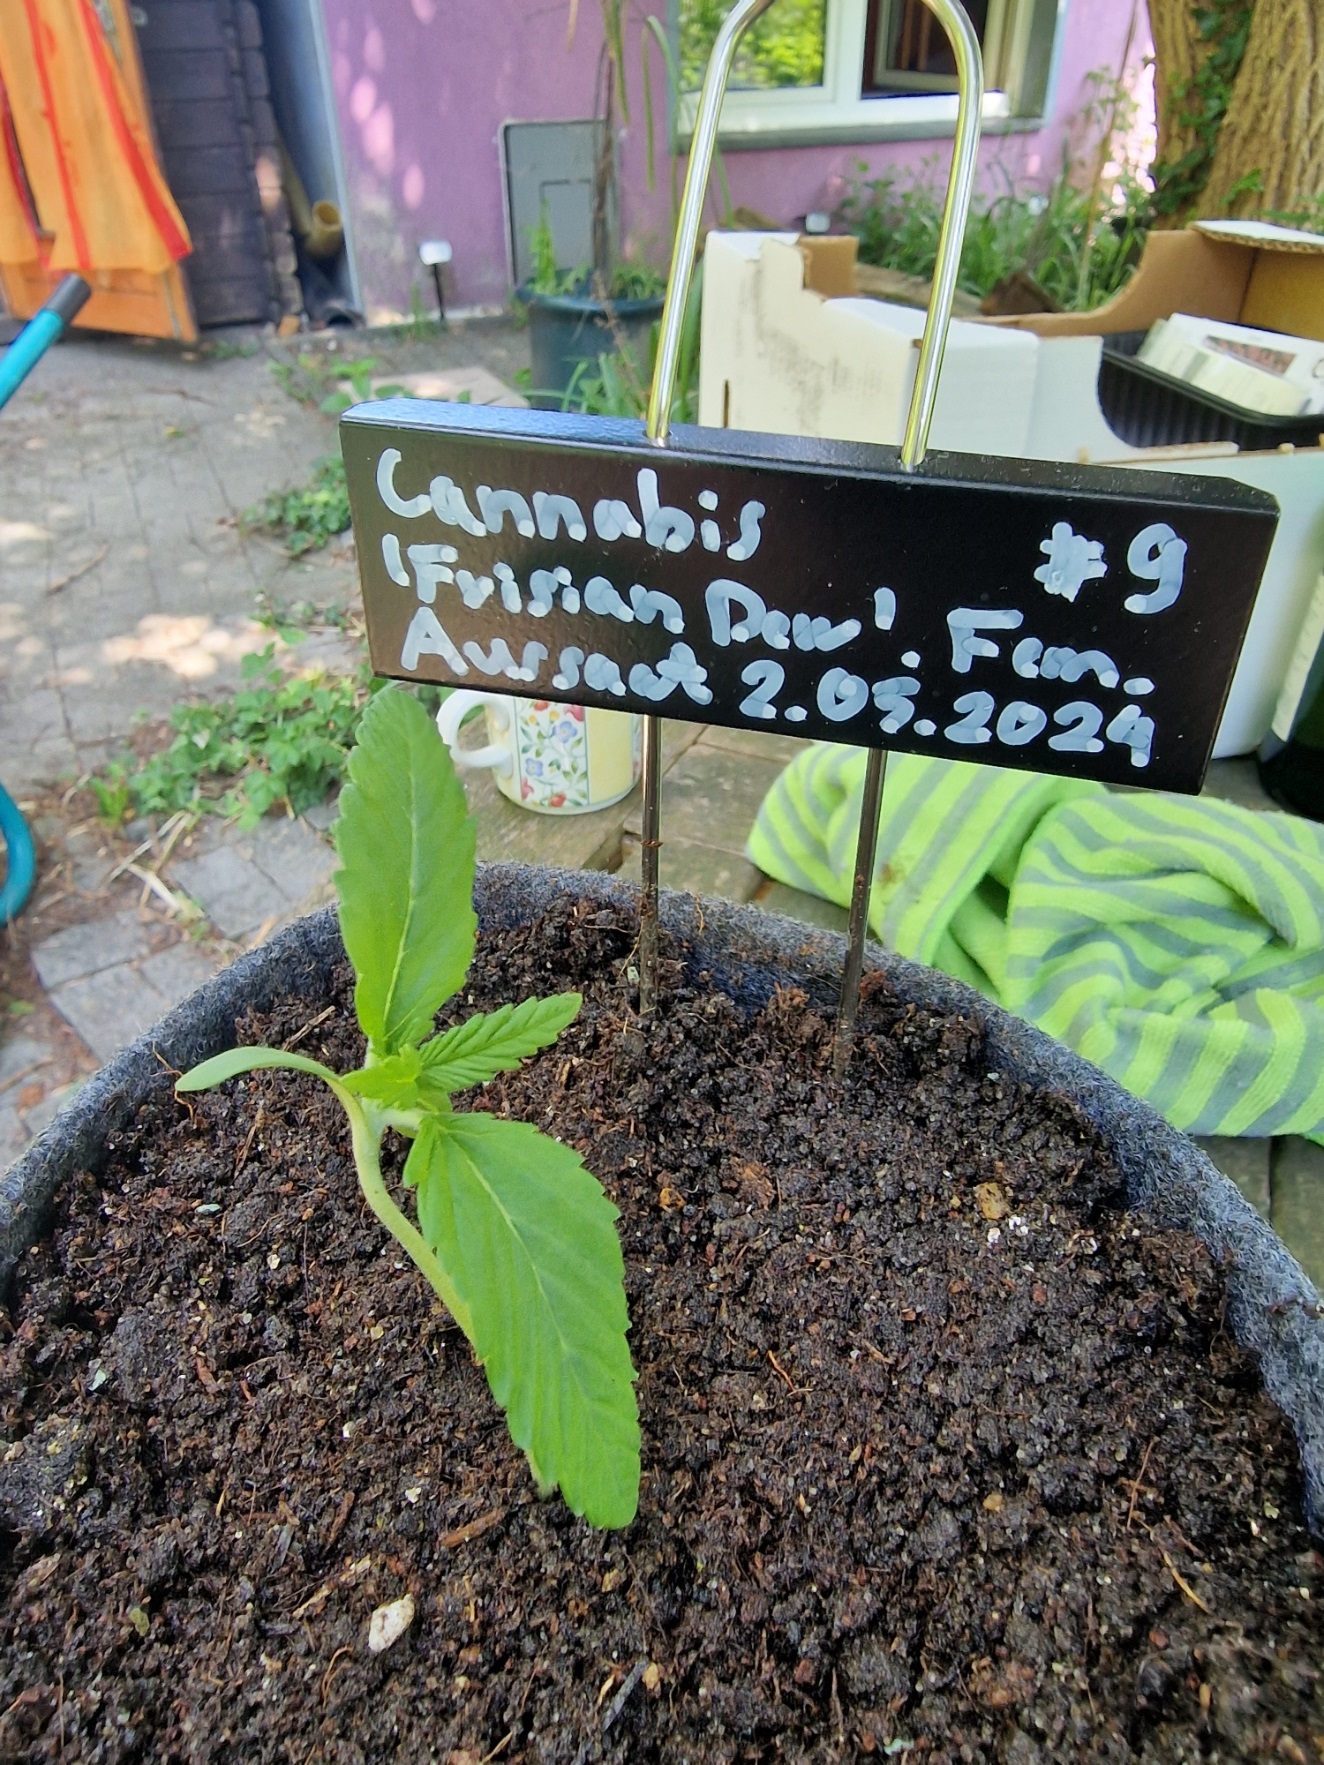 Cannabis #9
'Frisian Dew'. Fem.
Aussaat 2.05.2024